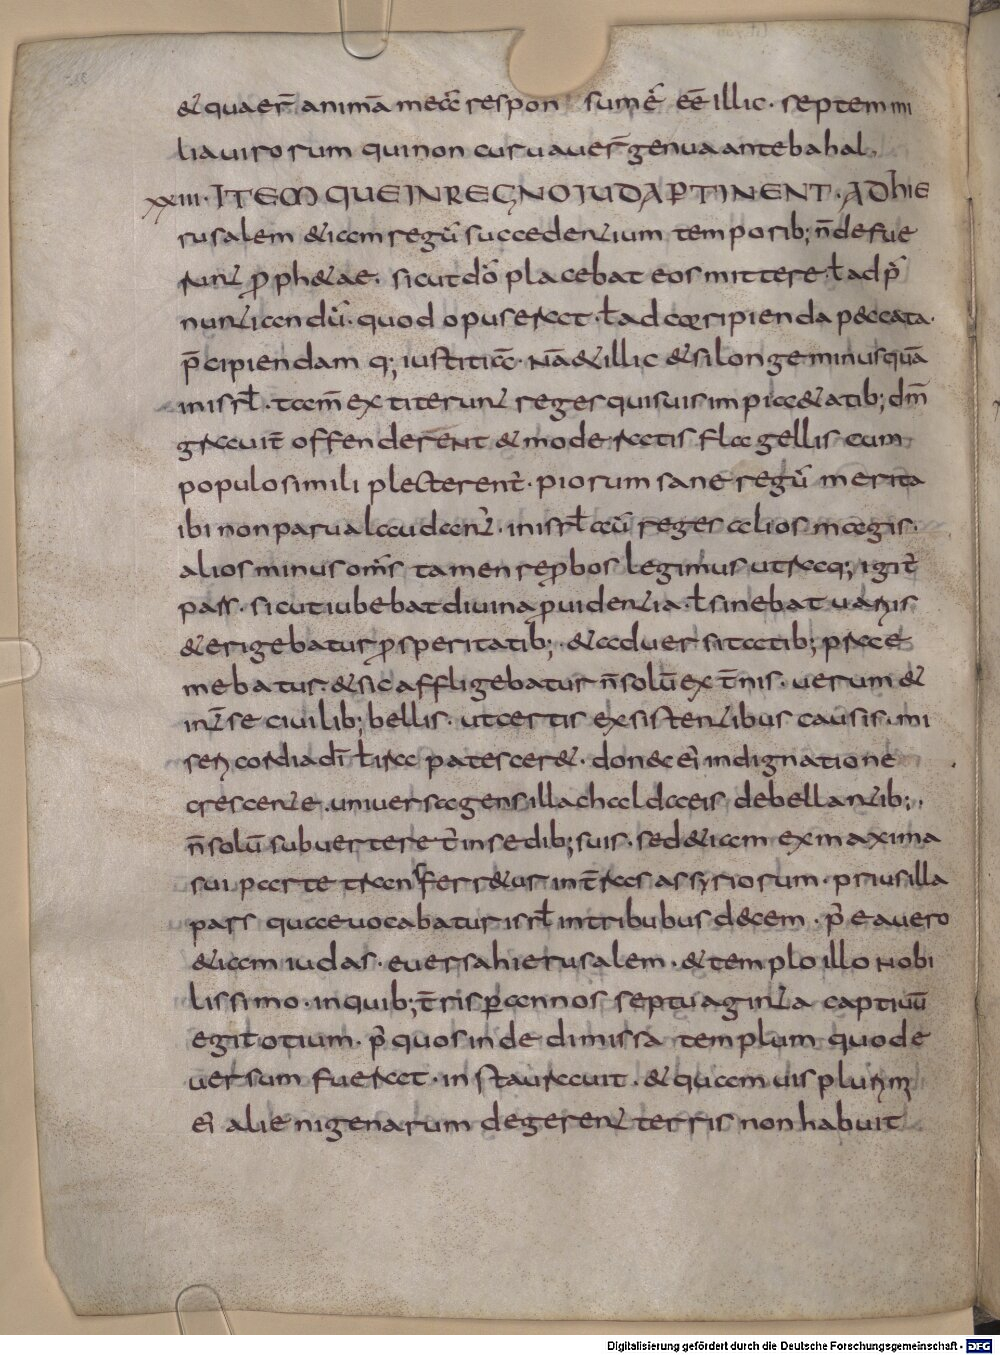 & quaer̄ animā meā respon sumē eē illic · septem mi
lia virorum qui non curvaver̄ genua ante bahal ·
XXIII · ITEM QUE IN REGNO IUDA P̄TINENT · AD HIE
rusalem &iam regū succedentium temporib; n̄ defue
runt ꝓph&ae · sicut dō placebat eos mittere · ł ad p̄
nuntiandū · quod opus erat · ł ad corripienda peccata ·
p̄cipiendam q; iustitiā · Nā & illic & si longe minus quā
in isrł · tam̄ extiterunt reges qui suis impi&atib; dm̄
gravit̄ offenderent & moderatis flagellis cum
populo simili plecterent̄ · piorum sane regū merita
ibi non parva laudant̄ · in isrł aū reges alios magis ·
alios minus om̄s tamen reꝓbos legimus utraq; igit̄
pars · sicut iubebat divina ꝓvidentia · ł sinebat variis
& erigebatur ꝓsperitatib; · & adversitatib; prae
mebatur · & sic affligebatur n̄ solū ext̄nis · verum &
int̄ se civilib; bellis · ut certis existentibus causis · mi
sericordia dī ł ira patescer& · donec eī indignatione
crescente · universa gens illa chaldaeis debellantib; ·
n̄ solū subverteret̄ in sedib; suis · sed &iam ex maxima
sui parte transferr&ur in t̄ras assyriorum · prius illa
pars quae vocabatur isrł in tribubus decem · p̄ea vero
&iam iudas · eversa hierusalem · & templo illo Nobi
lissimo · in quib; t̄ris p̄ annos septuaginta captivū
egit otium · p̄ quos inde dimissa templum quod e
versum fuerat · instauravit · & quam vis plurim
eī alienigenarum degerent terris non habuit
Digitalisierung gefördert durch die Deutsche Forschungsgemeinschaft - DFG